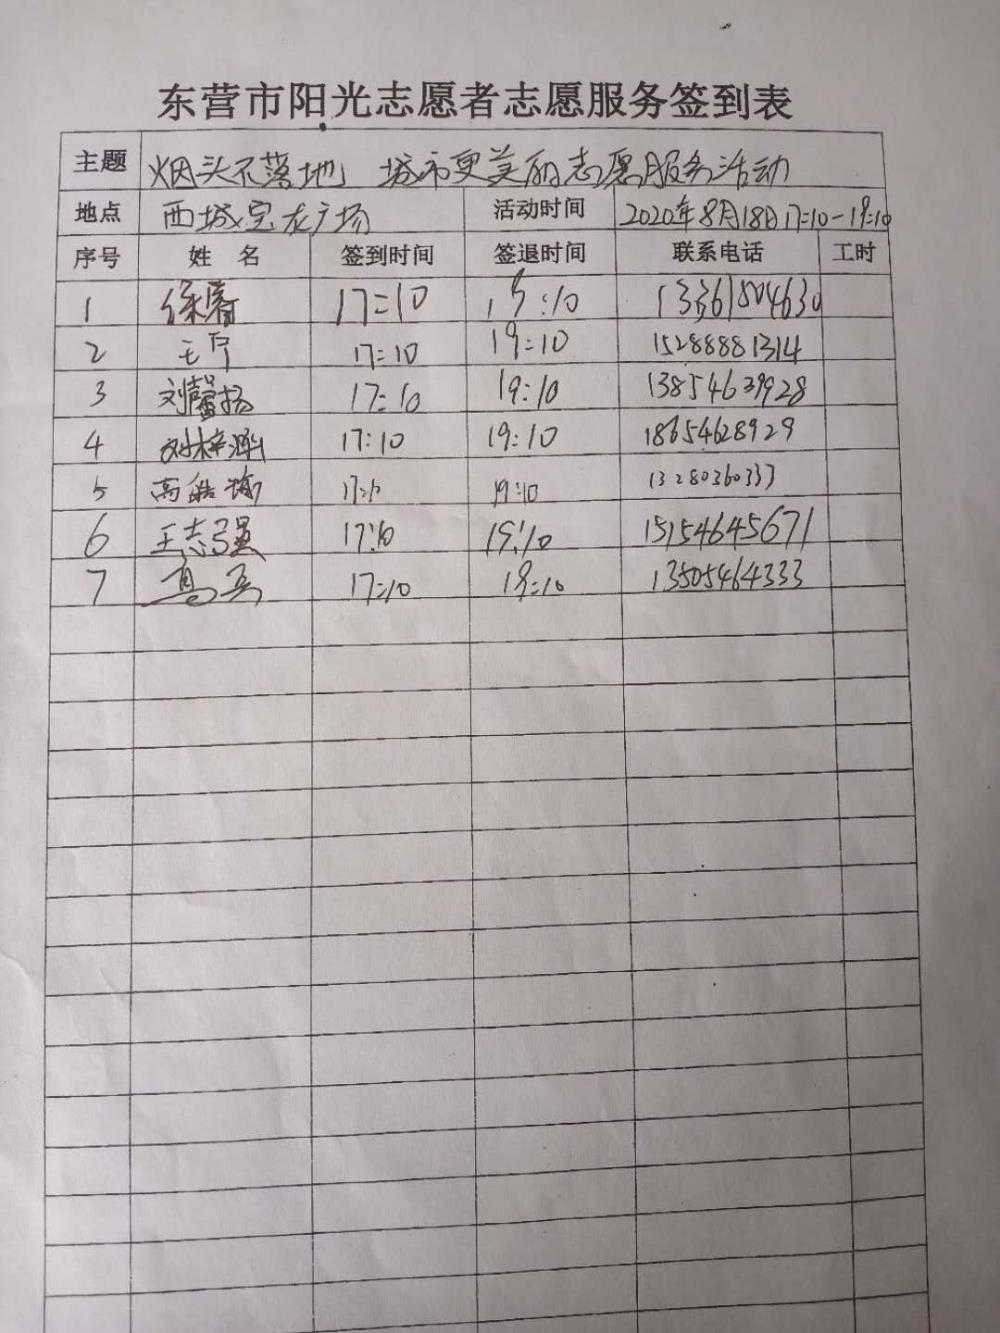 东营市阳光志愿者志愿服务签到表
主题 烟头不落地 城市更美丽志愿服务活动
地点 西城宝龙广场 活动时间 2020年8月18日17:10-19:10
序号 姓名 签到时间 签退时间 联系电话 工时
1 徐 17:10 19:10 13361804630
2 王 17:10 19:10 15288881314
3 刘馨扬 17:10 19:10 13854639928
4 刘梓涵 17:10 19:10 18654628929
5 高皓 17:10 19:10 13280360337
6 王志强 17:10 19:10 15154645671
7 17:10 19:10 13505464333